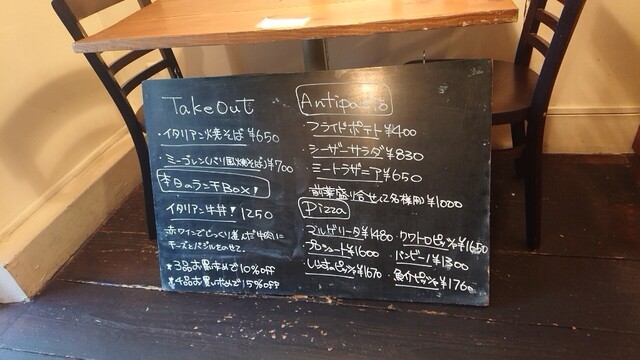 TakeOut
・イタリアン焼そば ¥650
・ミーゴレン(バリ風焼そば) ¥700
本日のランチBox!
イタリアン牛丼! 1250
赤ワインでじっくり煮んだ牛肉に
チーズとバジルをのせて。
※3品お買い求めで10%OFF
※4品お買い求めで15%OFF
Antipasto
・フライドポテト ¥400
・シーザーサラダ ¥830
ミートラザニア ¥650
前菜盛り合せ(2名様用) ¥1000
Pizza
マルゲリータ ¥1480 ・クワトロピッツァ ¥1650
・プロシュート ¥1600 ・バンビーノ ¥1300
・しらすのピッツァ ¥1670 ・魚介ピッツァ ¥176